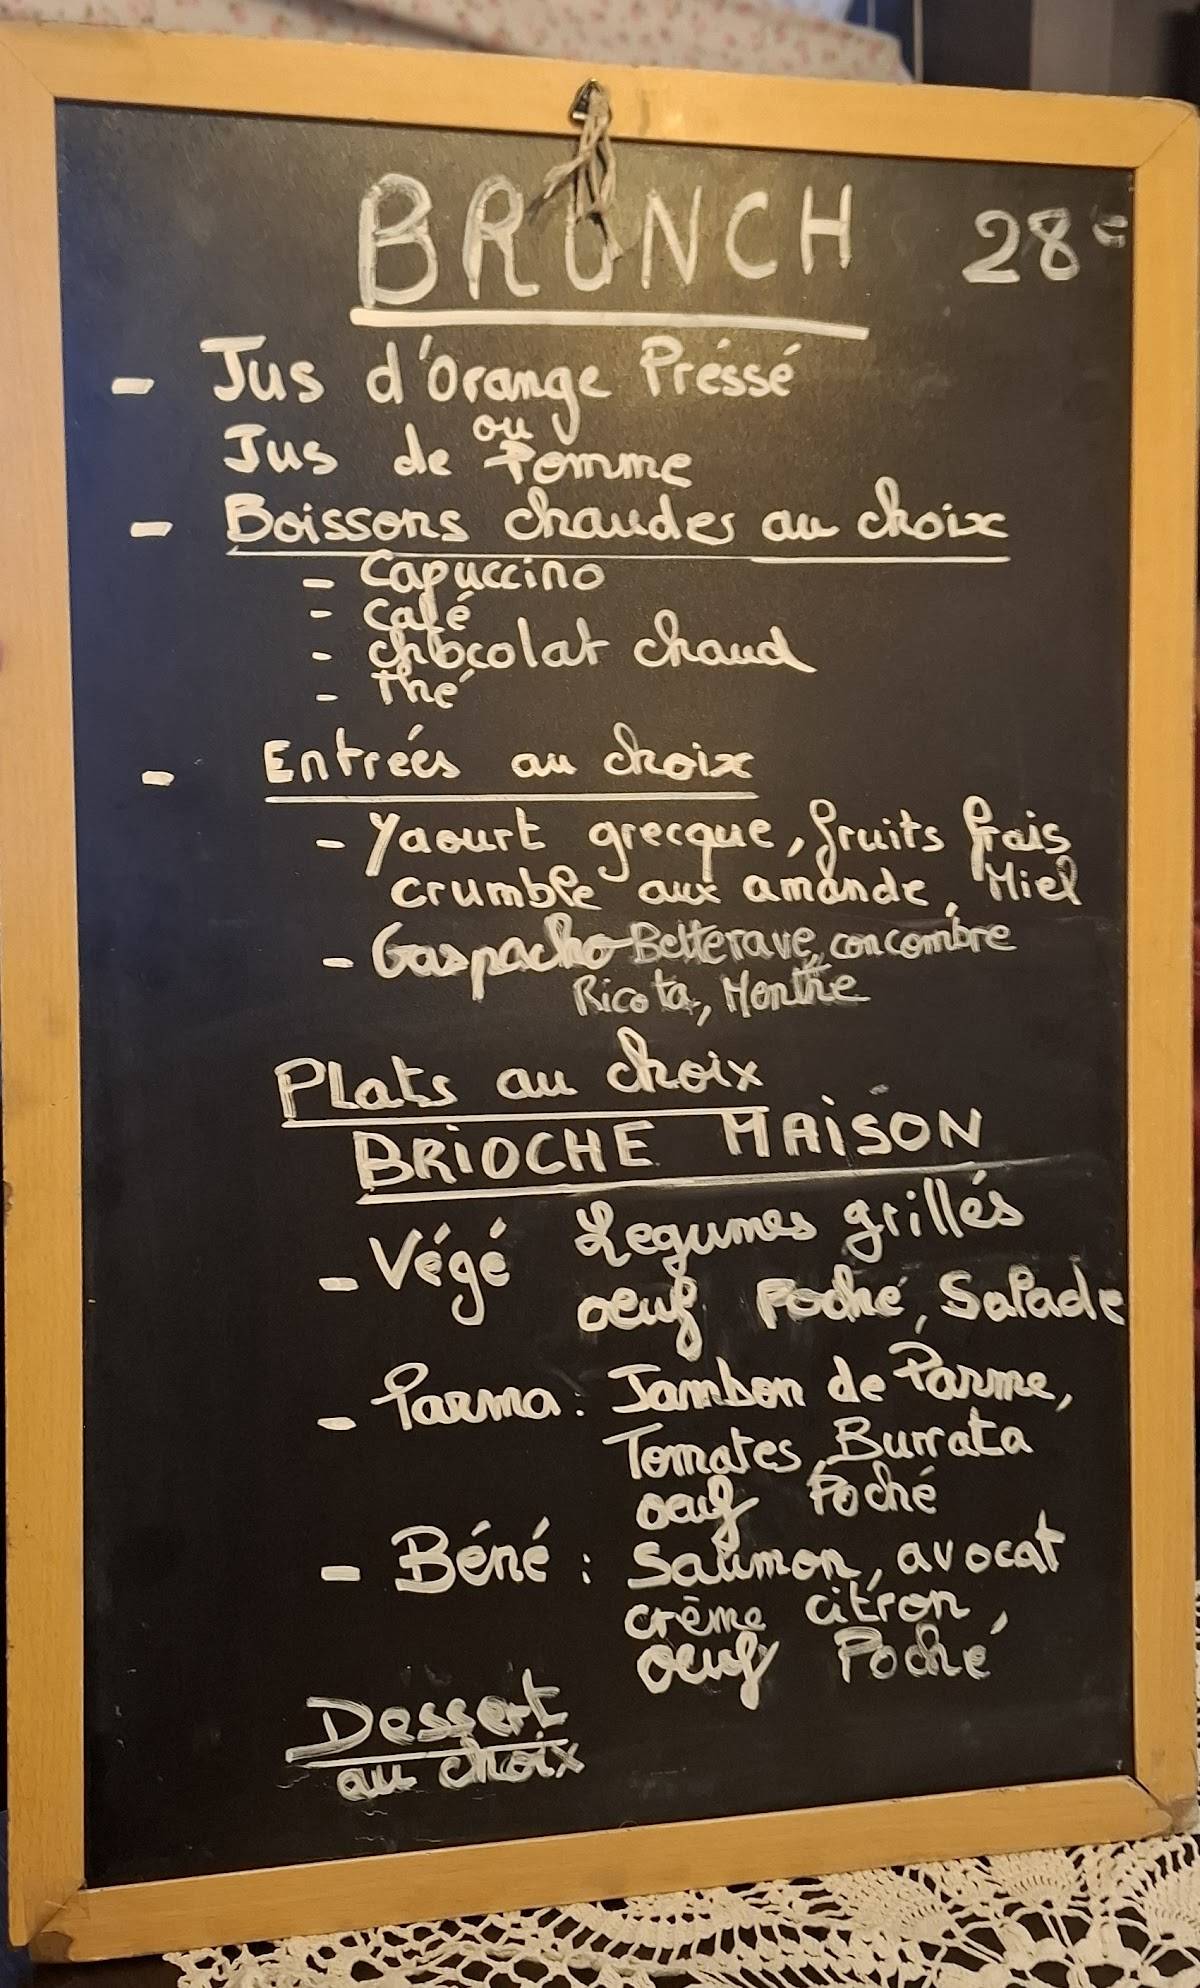 BRUNCH 28€
- Jus d'Orange Préssé
ou
Jus de Pomme
- Boissons chaudes au choix
- Capuccino
- Café
- chocolat chaud
- Thé
- Entrées au choix
- Yaourt grecque, fruits frais
crumble aux amande, Miel
- Gaspacho Betterave, concombre
Ricota, Menthe
Plats au choix
BRIOCHE MAISON
- Végé Legumes grillés
oeuf Poché, Salade
- Parma : Jambon de Parme,
Tomates, Burrata
oeuf Poché
- Béné : Saumon, avocat
crème citron,
oeuf Poché
Dessert
au choix